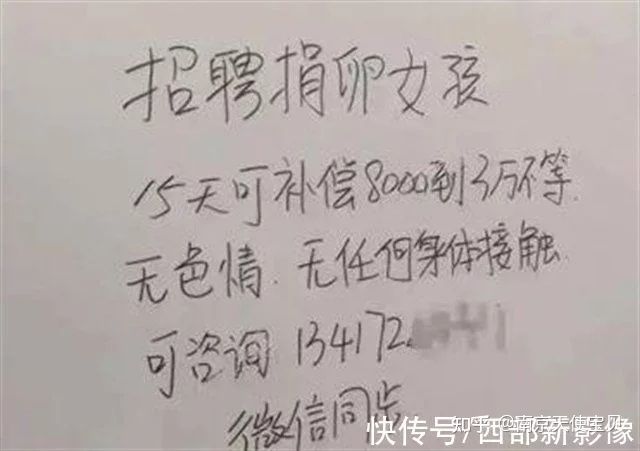 招聘捐卵女孩
15天可补偿8000到3万不等.
无色情.无任何身体接触.
可咨询 134172
微信同步
知乎 @南京天使宝贝
快传号/西部新影像